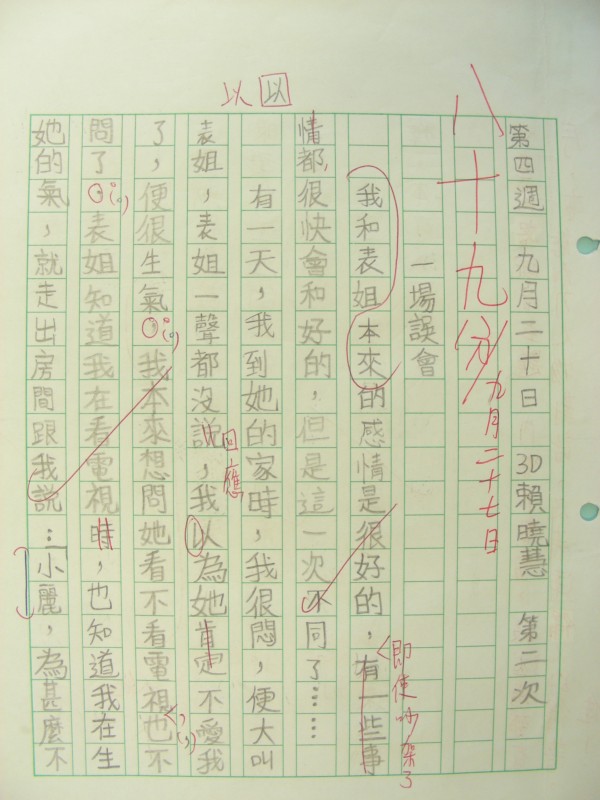 第四週 九月二十日 3D賴曉慧 第二次
八十九分
九月二十七日
一場誤會
我和表姐本來的感情是很好的，有一些事
即使吵架了
情都很快會和好的，但是這一次不同了……
有一天，我到她的家時，我很悶，便大叫
以 以
表姐，表姐一聲都沒說，我以為她肯定不愛我
回應
了，便很生氣。我本來想問她看不看電視也不
問了。表姐知道我在看電視時，也知道我在生
她的氣，就走出房間跟我說：「小麗，為甚麼不